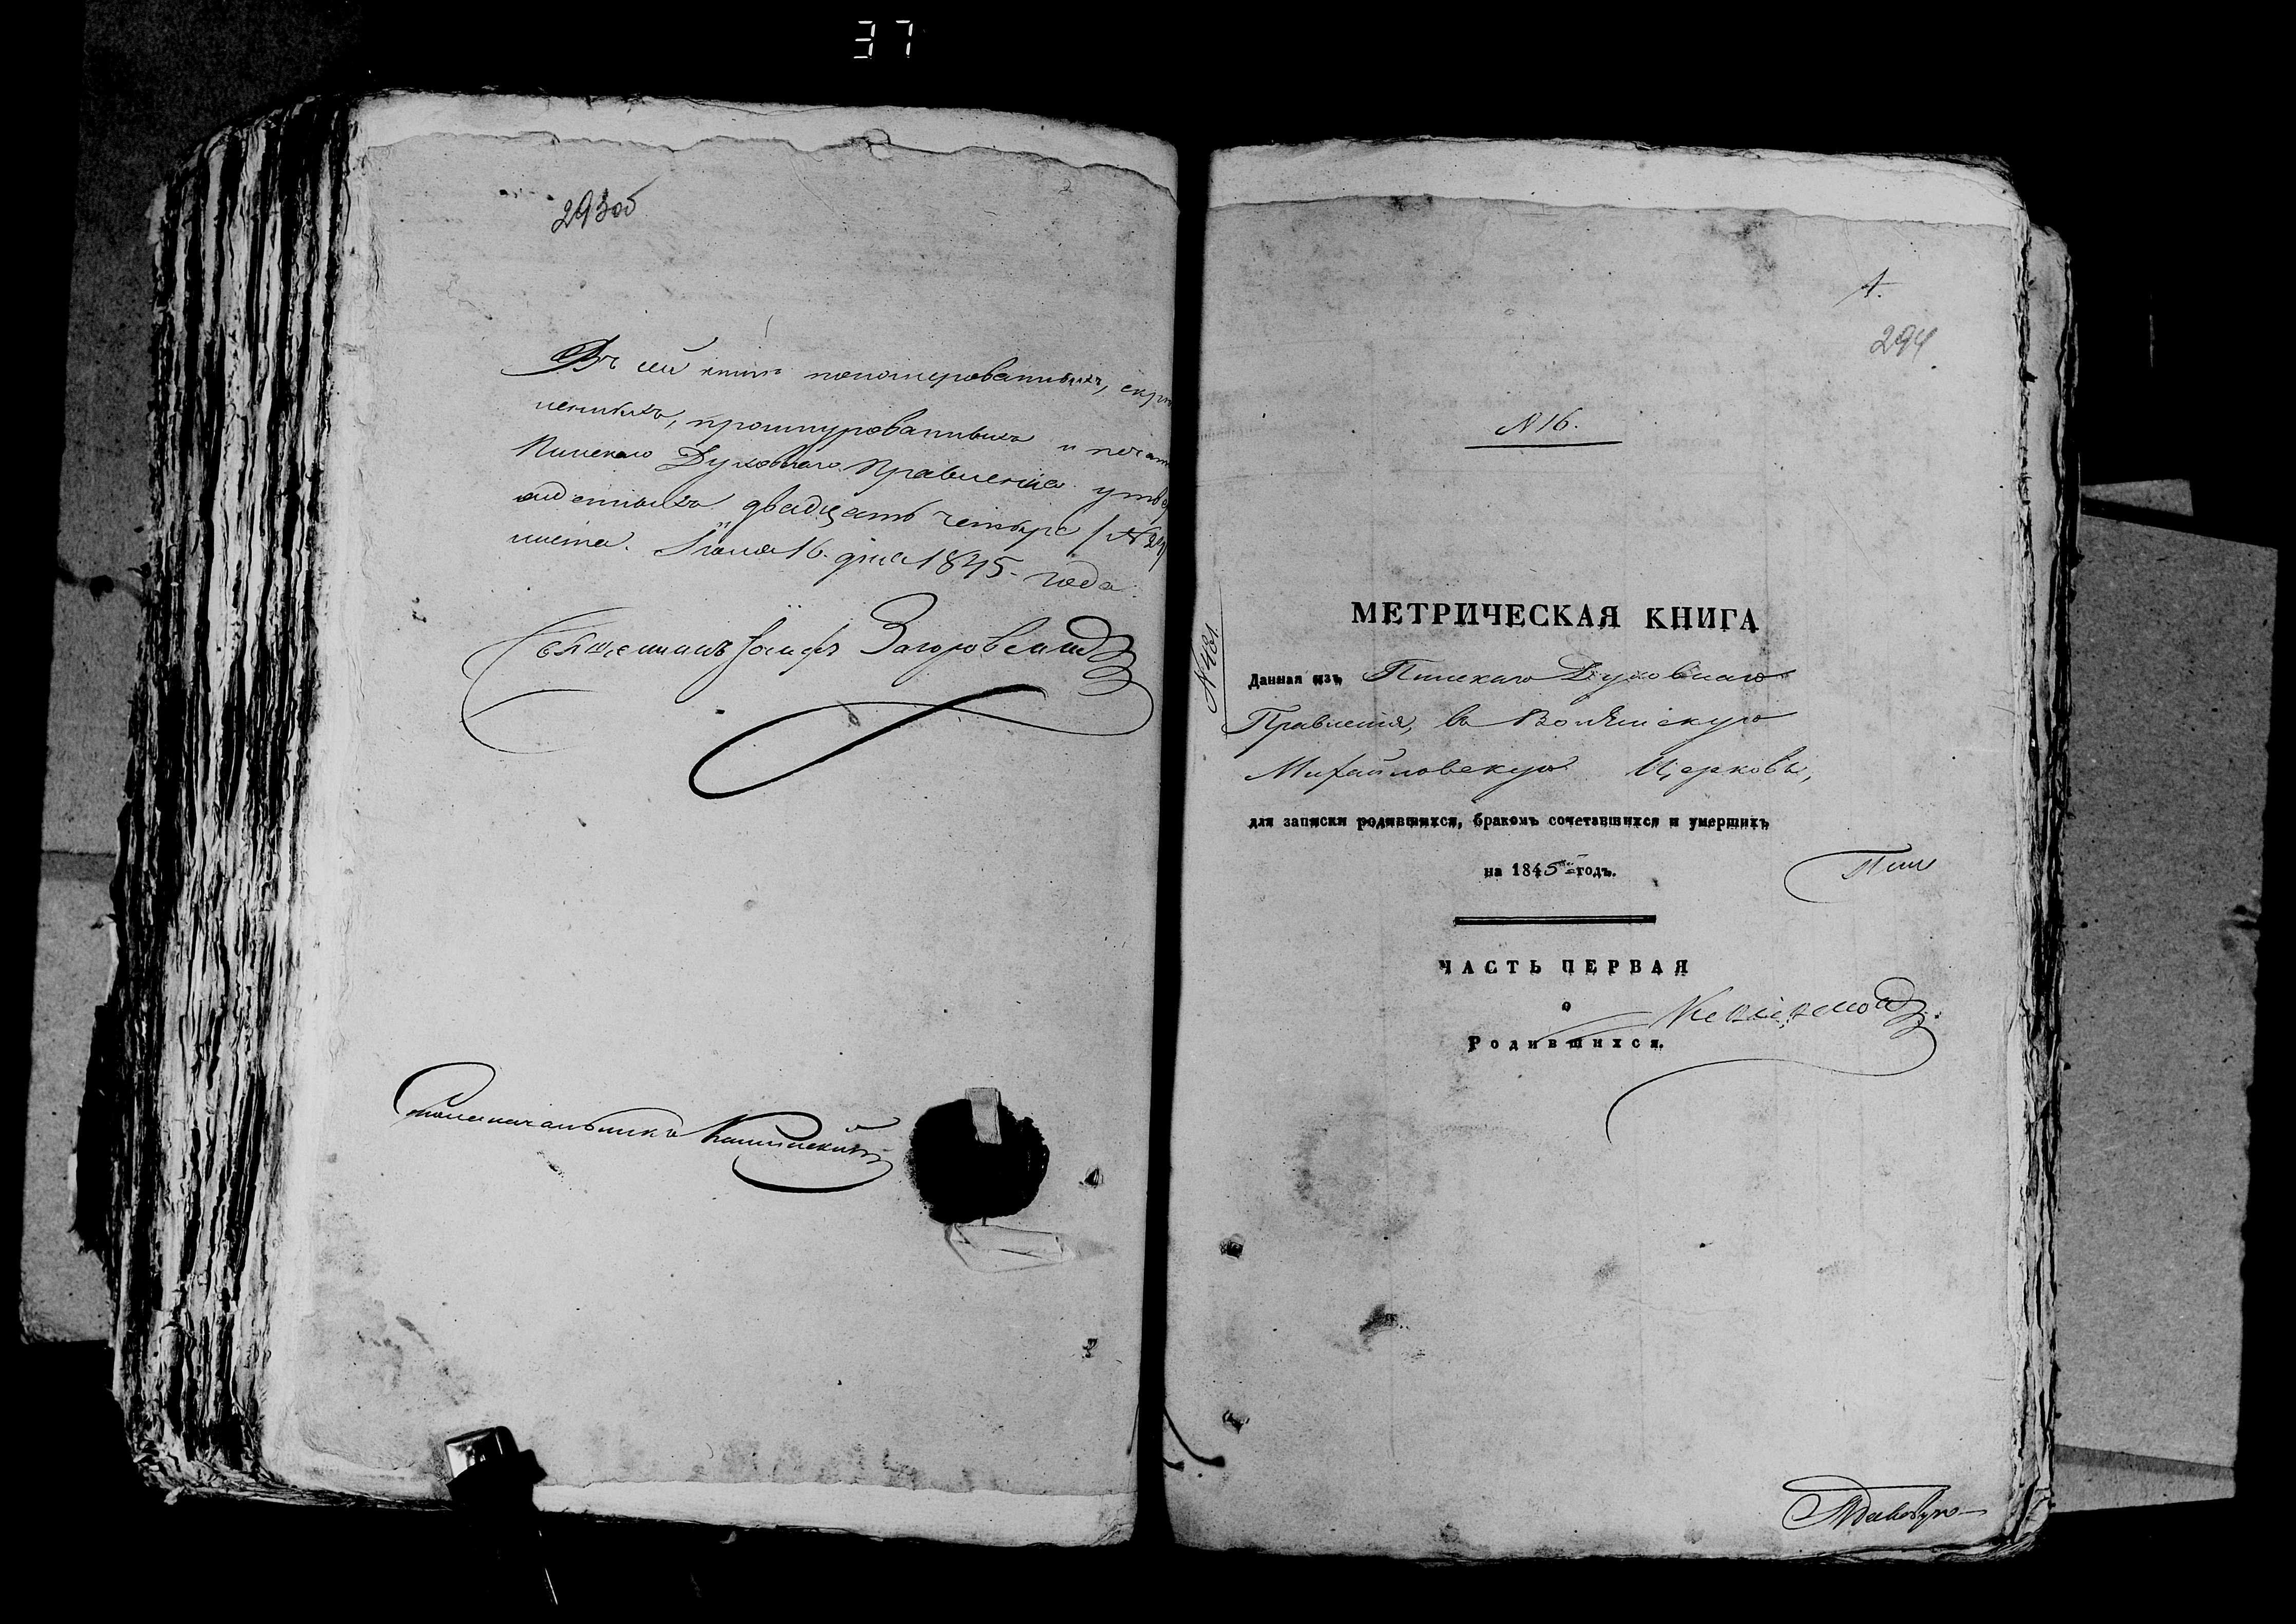 37
293об
Въ сей книге пономерованныхъ, скре
пленныхъ, прошнурованныхъ и печат
Пинскаго Духовнаго Правления утвер
жденныхъ двадцать четыре /N 24/
листа. Iюня 16. дня 1845. года.
Священникъ Iосифъ
Столоначальникъ
1.
294
N 16.
МЕТРИЧЕСКАЯ КНИГА
N 481
Данная изъ Пинскаго Духовнаго
Правления, въ
Михайловскую Церковь,
для записки родившихся, бракомъ сочетавшихся и умершихъ
на 1845 годъ.
Пин
ЧАСТЬ ПЕРВАЯ
о
Родившихся.